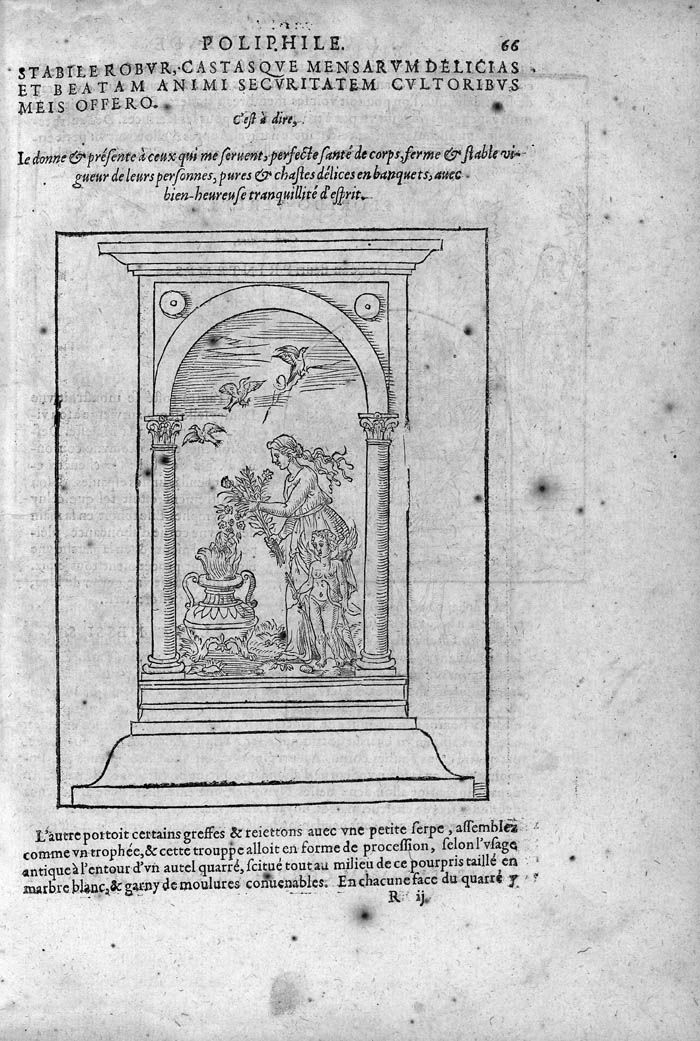 POLIPHILE. 66
STABILE ROBVR, CASTASQVE MENSARVM DELICIAS
ET BEATAM ANIMI SECVRITATEM CVLTORIBVS
MEIS OFFERO.
C'est à dire,
Ie donne & présente à ceux qui me seruent, perfecte santé de corps, ferme & stable vi-
gueur de leurs personnes, pures & chastes délices en banquets, auec
bien-heureuse tranquillité d'esprit.
L'autre portoit certains greffes & reiettons auec vne petite serpe, assemblez
comme vn trophée, & cette trouppe alloit en forme de procession, selon l'vsage
antique à l'entour d'vn autel quarré, scitué tout au milieu de ce pourpris taillé en
marbre blanc, & garny de moulures conuenables. En chacune face du quarré y
R ij